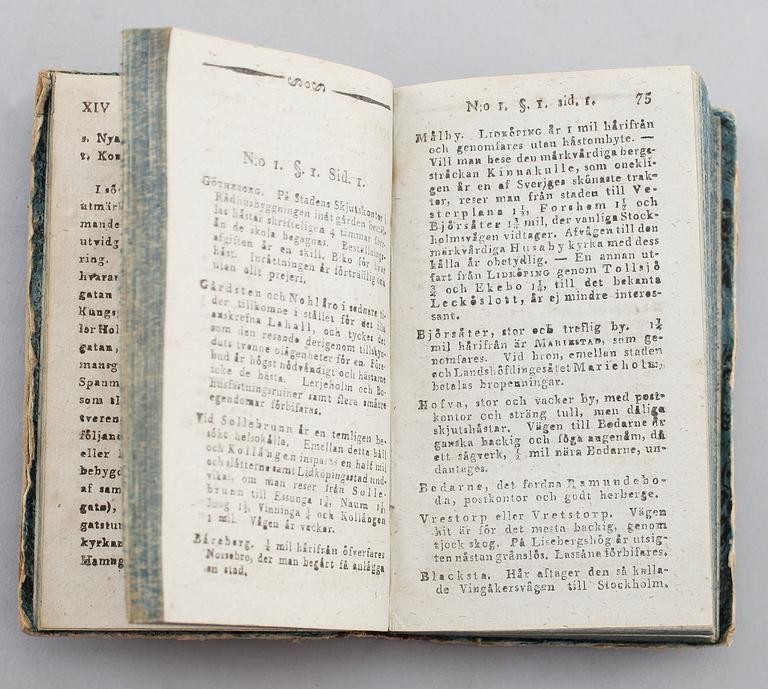 XIV
s. Nya
t. Kon
I sö
utmärk
mande
utvidg
ring.
hvarar
gatan
Kungs
lør Hol
gatan,
mansg
Spanm
som sl
tveren
följand
eller
bebygd
af sam
gate),
gatstut
kyrkan
Hamng
N:o 1. §. 1. Sid. 1.
GÖTHEBORG. På Stadens Skjutskontor i
Rådhusbyggningen inåt gården bestäl-
las hästar skriftligen 4 timmar förr-
än de skola begagnas. Beställnings-
afgiften är en skill. B:ko för hvar
häst. Inrättningen är förträfflig och
utan allt prejeri.
Gårdsten och Nohlåro i sednare ti-
der tillkomne i stället för det illa
anskrefna Lahall, och tyckes det
som den resande derigenom tillskyn-
dats trenne olägenheter för en. Före-
bud är högst nödvändigt och hästarne
icke de bästa. Lerjeholm och Bo-
husfästningsruiner samt flera smärre
egendomar förbifaras.
Vid Sollebrunn är en temligen be-
sökt helsokälla. Emellan detta håll
och Kollängen insparas en half mil
och slätterne samt Lidköpings stad und-
vikas, om man reser från Solle-
brunn till Essunga 1¾, Naum 1¼,
Jung 1¼, Vinninga ¾ och Kollängen
1 mil. Vägen är vacker.
Båreberg. ¼ mil härifrån öfverfares
Nossebro, der man begärt få anlägga
en stad.
N:o 1. §. 1. sid. 1. 75
Målby. LIDKÖPING är 1 mil härifrån
och genomfares utan hästombyte. —
Vill man bese den märkvärdiga bergs-
sträckan Kinnakulle, som onekli-
gen är en af Sveriges skönaste trak-
ter, reser man från staden till Ve-
sterplana 1½, Forshem 1½ och
Björsäter 1¾ mil, der vanliga Stock-
holmsvägen vidtager. Afvägen till den
märkvärdiga Husaby kyrka med dess
källa är obetydlig. — En annan ut-
fart från LIDKÖPING genom Tollsjö
¾ och Ekebo 1¼, till det bekanta
Leckö slott, är ej mindre interes-
sant.
Björsäter, stor och treflig by. 1½
mil härifrån är MARIESTAD, som ge-
nomfares. Vid bron, emellan staden
och Landshöfdingesätet Marieholm,
betalas bropenningar.
Hofva, stor och vacker by, med post-
kontor och sträng tull, men dåliga
skjutshästar. Vägen till Bodarne är
ganska backig och föga angenäm, då
ett sågverk, ½ mil nära Bodarne, un-
dantages.
Bodarne, det fordna Ramundebo-
da, postkontor och godt herberge.
Vrestorp eller Vretstorp. Vägen
hit är för det mesta backig, genom
tjock skog. På Lisebergshög är utsig-
ten nästan gränslös. Lassåna förbifares.
Blacksta. Här aftager den så kalla-
de Vingåkersvägen till Stockholm.